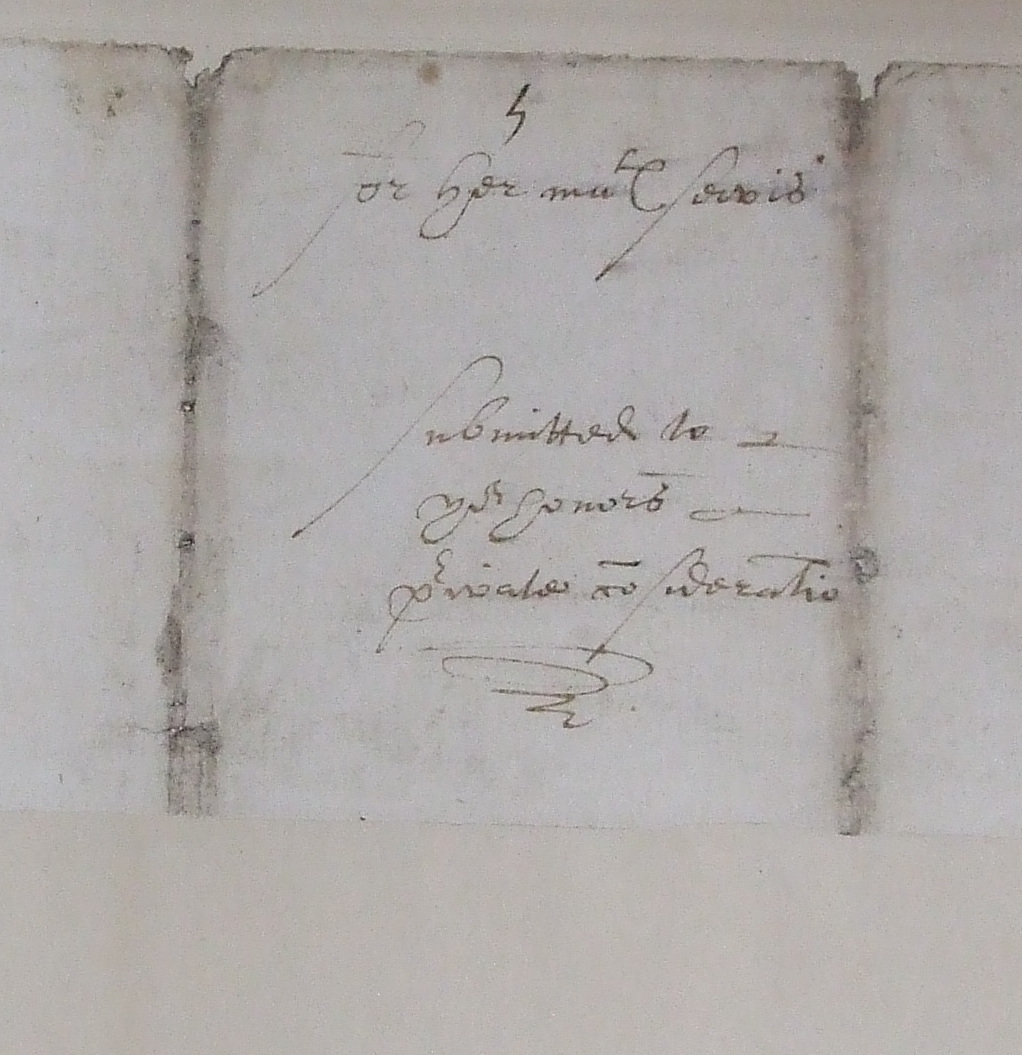 5
for her mates servis
submitted to
yor honors
private cōsideratiō